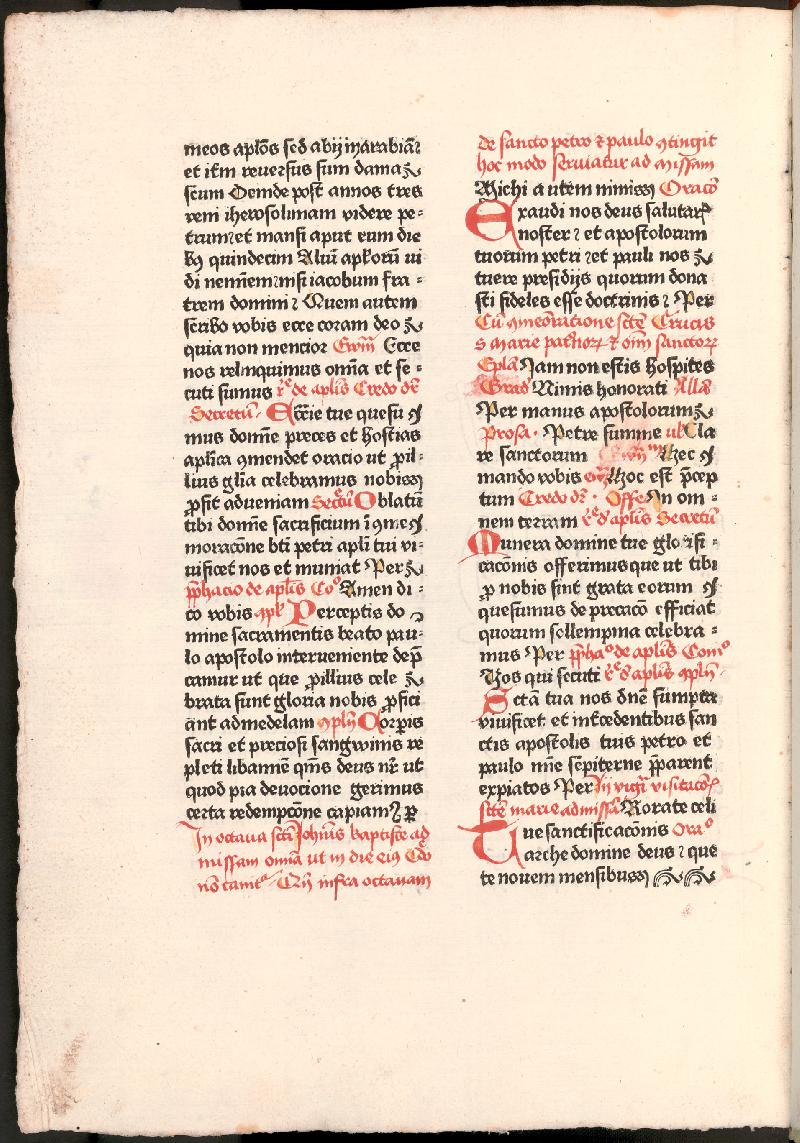 meos aplōs sed abij in arabiā ⁊
et itm̄ reuersus sum dama
scum Deinde post annos tres
veni iherosolimam videre pe-
trum ⁊ et mansi aput eum die
bꝫ quindecim Aliū aplorū vi
di nemīem nisi iacobum fra-
trem domini ⁊ Quem autem
scribo vobis ecce coram deo
quia non mencior Ewm̄ Ecce
nos relinquimus om̄ia et se-
cuti sumus rꝰ de aplis Credo dr̄
Secretū Ecc̄ie tue quesu
mus domīe preces et hostias
aplica ꝯmendet oracio ut ꝓ il-
lius glīa celebramus nobis
ꝓsit ad veniam Secr̄tū Oblatū
tibi domīe sacrificium i ꝯme
moracōne bti petri apli tui vi-
uificet nos et muniat Per
p̄phacio de aplis Co° Amen di-
co vobis ꝯpl Perceptis do
mine sacramentis beato pau-
lo apostolo interueniente dep̄
camur ut que ꝓ illius cele
brata sunt gloria nobis ꝓfici
ant ad medelam ꝯpln̄ Corpis
sacri et preciosi sangwinis re
pleti libamīe qm̄s deus nr̄ ut
quod pia deuocione gerimus
certa redempcōne capiam⁊ ꝑ
In octaua scti Johīis baptiste ad
missam om̄ia ut in die eius Cdo
nō cantᵗ Cū infra octauam
de sancto petro ⁊ paulo ꝯtingit
hoc modo seruiatur ad missam
Michi autem nimis Oracō
Exaudi nos deus salutar
noster ⁊ et apostolorum
tuorum petri ⁊ et pauli nos
tuere presidijs quorum dona
sti fideles esse doctrinis ⁊ Per
Cū ꝯmeōratione scte Crucis
s marie patrīoꝝ ⁊ oīm sanctoꝝ
Epla Iam non estis hospites
Grad Nimis honorati Alla
Per manus apostolorum
Prosa Petre summe ul Cla
re sanctorum Ewm̄ Hec
mando vobis ew Hoc est p̄cep
tum Credo dr̄ Offe In om-
nem terram rꝰ d aplis Secretū
Munera domine tue glorifi-
cacōnis offerimus que ut tibi
ꝓ nobis sint grata eorum
quesumus deprecacō efficiat
quorum sollempnia celebra-
mus Per p̄phaᵒ de aplis Comᵒ
Vos qui secuti rꝰ d aplis ꝯpln̄
Scta tua nos dn̄e sumpta
viuificet et int̄cedentibus san
ctis apostolis tuis petro et
paulo nīe sēpiterne p̄parent
expiatos Per In vigi visitacōis
scte marie ad missā Rorate celi
Tue sanctificacōnis Oraᵒ
arche domine deus ⁊ que
te nouem mensibus